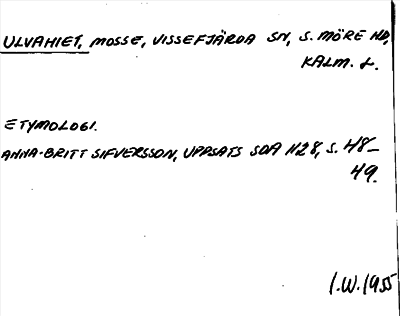 ULVAHIET, MOSSE, VISSEFJÄRDA SN, S. MÖRE HD,
KALM. L.
ETYMOLOGI.
ANNA-BRITT SIFVERSSON, UPPSATS SOA 1128, S. 48-
49.
I.W. 1955